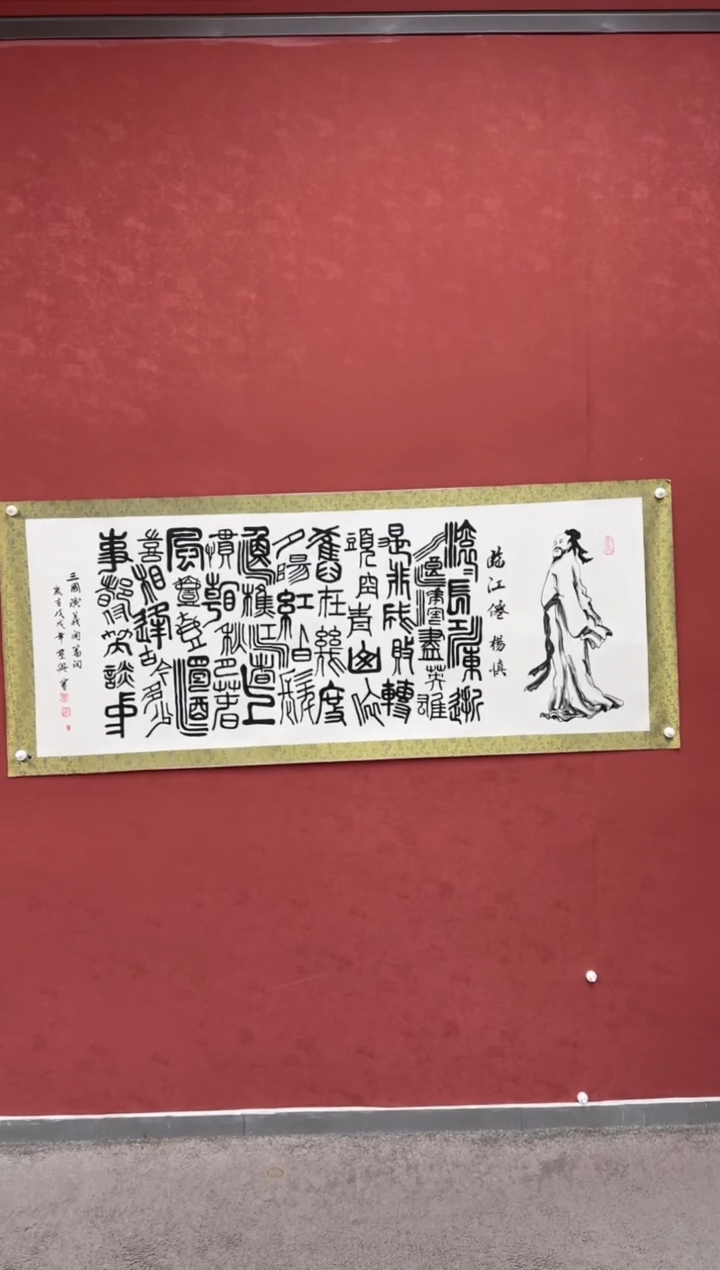 臨江僊 楊慎
滾滾長江東逝
水浪花淘盡英雄
是非成敗轉
頭空青山依
舊在幾度
夕陽紅白髮
漁樵江渚上
慣看秋月春
風一壺濁酒
喜相逢古今多少
事都付笑談中
三國演義開篇詞